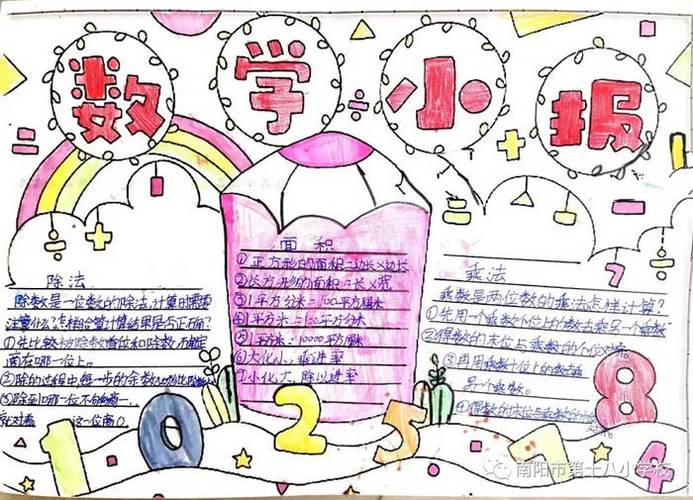 数学小报
除法
除数是一位数的除法,计算时需要
注意什么?怎样检算计算结果是否正确?
①先比较被除数首位和除数
商在哪一位上。
②除的过程中每一步的余数
③除到哪一位不够商一,
就对着 这一位商0
面积
①正方形的面积=边长×边长
②长方形的面积=长×宽
③1平方分米=100平方厘米
④1平方米=100平方分米
⑤1平方米=10000平方厘米
⑥大化小,乘进率
⑦小化大,除以进率
乘法
乘数是两位数的乘法怎样计算?
①先用一个乘数个位上的数去乘另一个乘数
②得数的末位与乘数的个位对齐
③再用乘数十位上的数去乘
另一个乘数。
④得数的末位与乘数的十位
1 0 2 5 7 8 4
南阳市第十八小学校